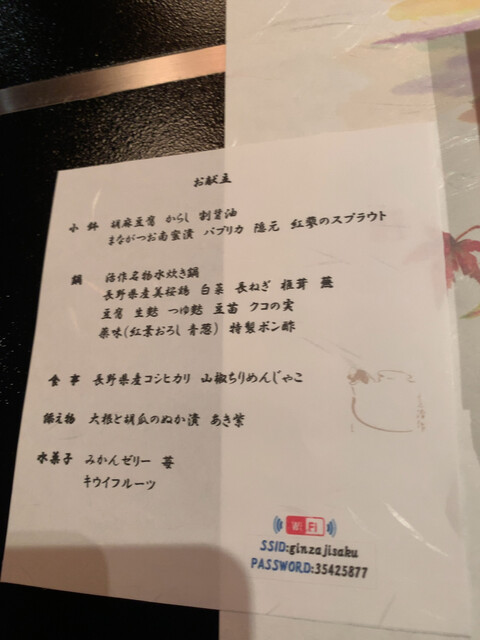 お献立
小鉢 胡麻豆腐 からし 割醤油
まながつお南蛮漬 パプリカ 隠元 紅蓼のスプラウト
鍋 治作名物水炊き鍋
長野県産美桜鶏 白菜 長ねぎ 椎茸
豆腐 生麩 つゆ麩 豆苗 クコの実
薬味(紅葉おろし 青葱) 特製ポン酢
食事 長野県産コシヒカリ 山椒ちりめんじゃこ
添え物 大根と胡瓜のぬか漬 あき紫
水菓子 みかんゼリー 苺
キウイフルーツ
Wi Fi
SSID:ginzajisaku
PASSWORD:35425877